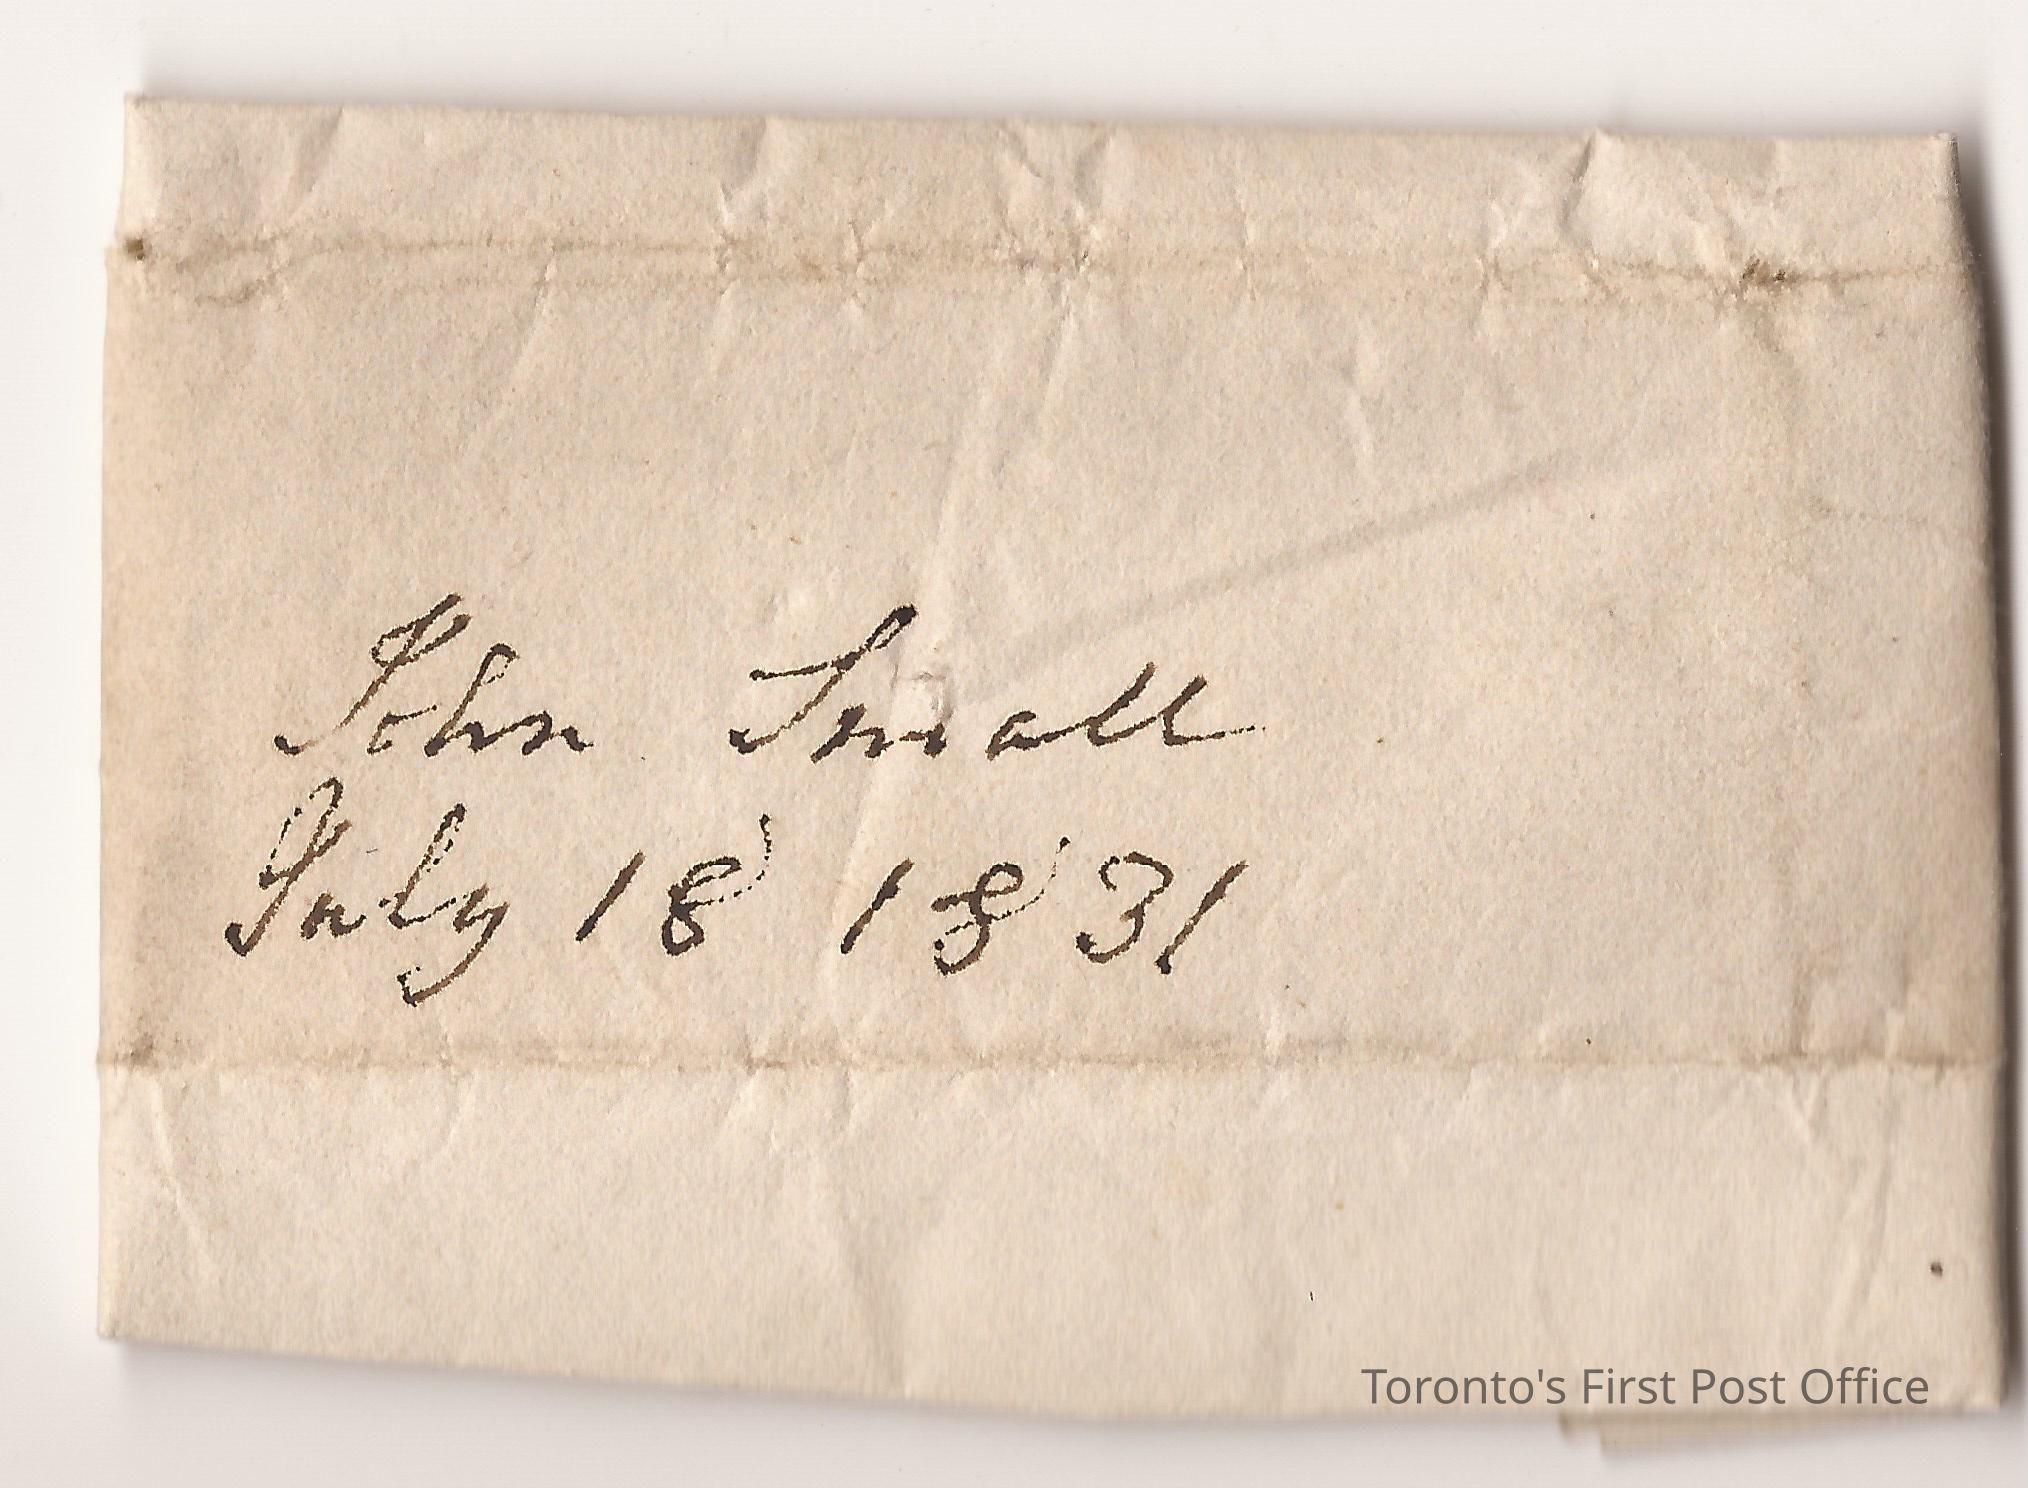 John Small
July 18 1831
Toronto's First Post Office